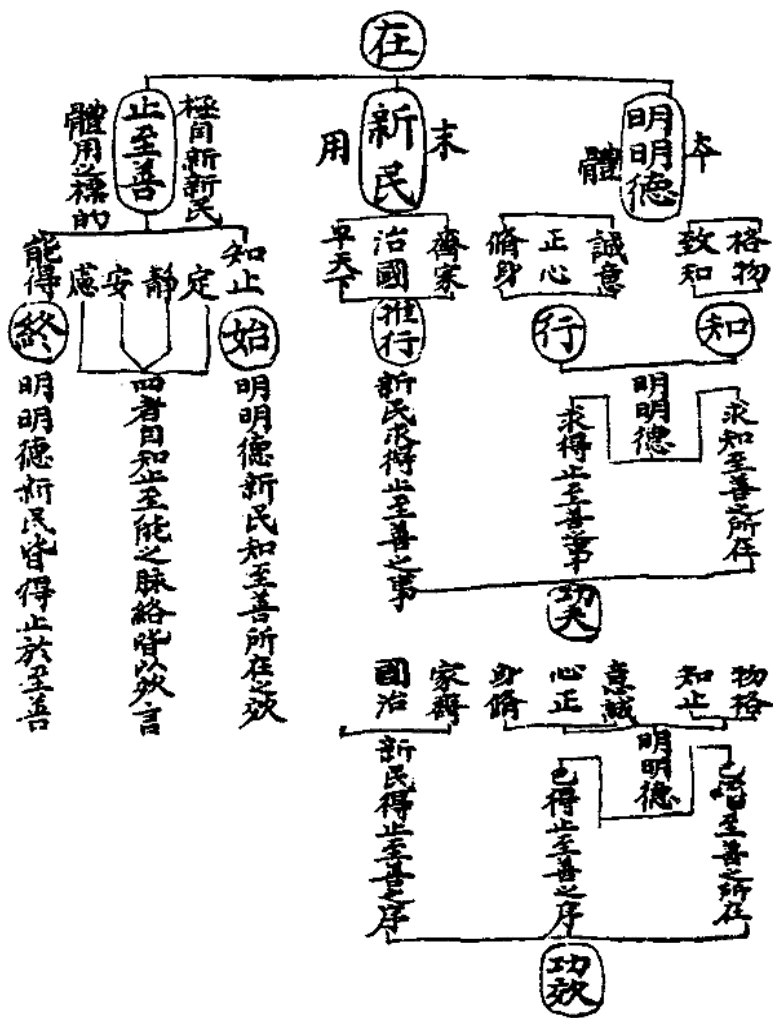 在
明明德
本
體
新民
末
用
止至善
極自新新民
體用之標的
格物
致知
誠意
正心
脩身
齊家
治國
平天下
知止
定
靜
安
慮
能得
知
行
推行
始
終
明明德
求知至善之所在
求得止至善之事
新民求得止至善之事
明明德新民知至善所在之效
四者自知止至能之脉絡皆以效言
明明德新民皆得止於至善
功夫
物格
知止
意誠
心正
身脩
家齊
國治
明明德
至善之所在
已得止至善之序
新民得止至善之序
功效